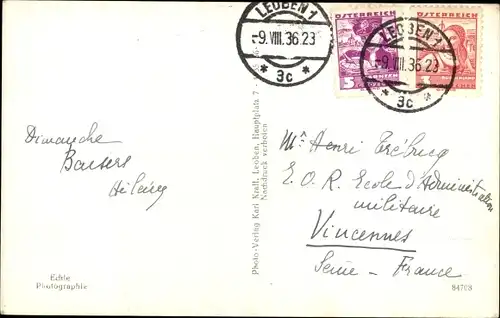 LEOBEN 1
-9.VIII.36.23
* 3c *
ÖSTERREICH
5
ÖSTERREICH
LEOBEN 1
-9.VIII.36.23
* 3c *
Dimanche
Baisers
Photo-Verlag Karl Krall, Leoben, Hauptplatz 7
Nachdruck verboten
Mr Henri
E.O.R. Ecole d'Administration
militaire
Vincennes
Seine - France
Echte
Photographie
84703